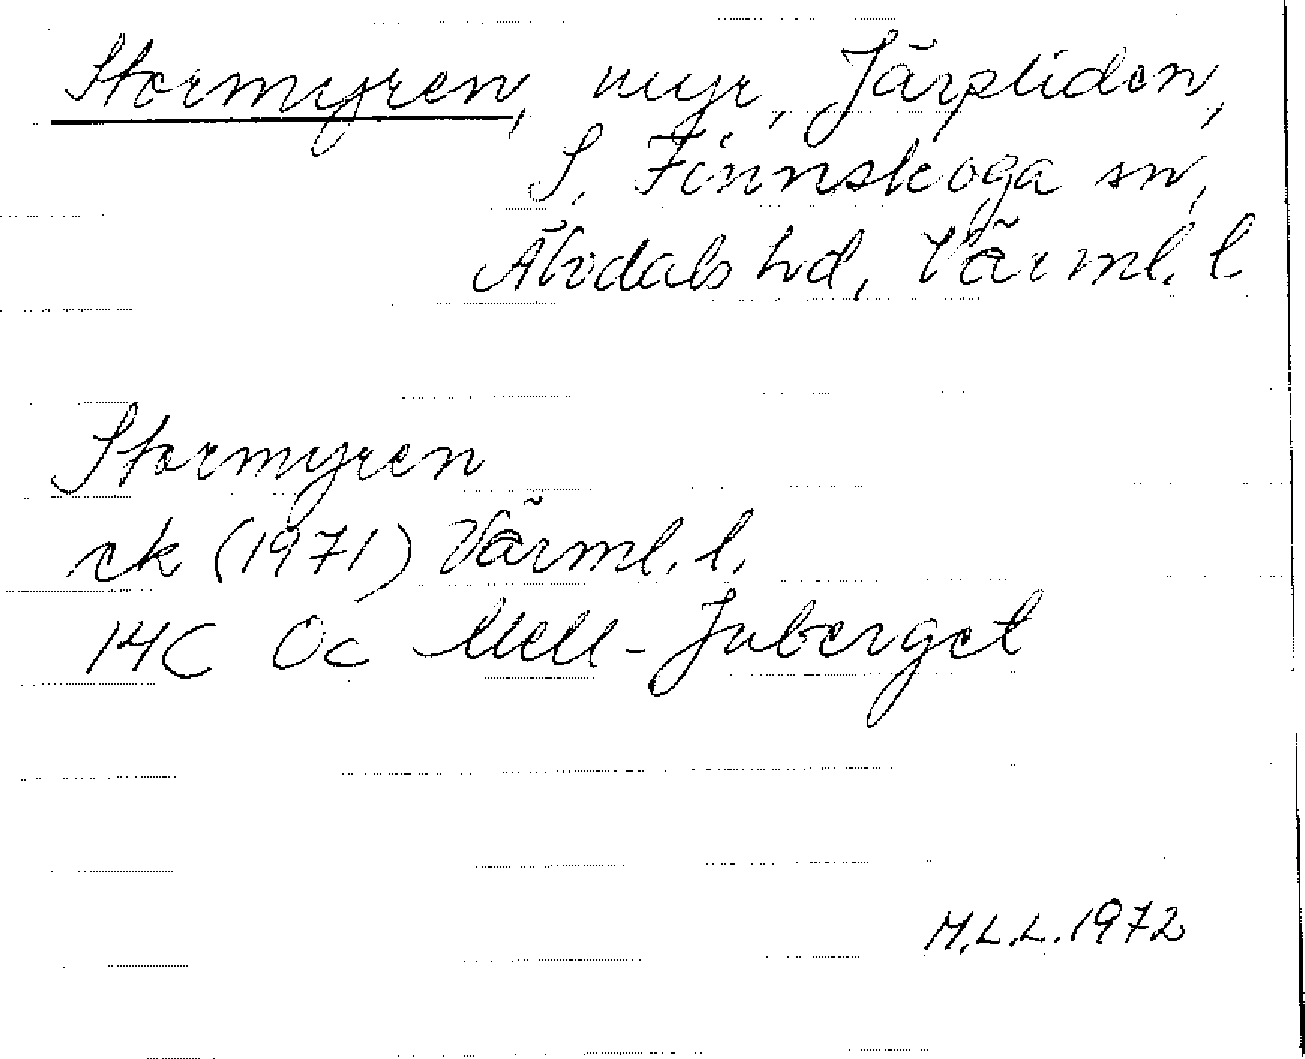 Stormyren, myr, Järpliden,
S. Finnskoga sn,
Älvdals hd, Värml. l
Stormyren
ek (1971) Värml. l.
14C Oc Mell-Juberget
M.L.L. 1972